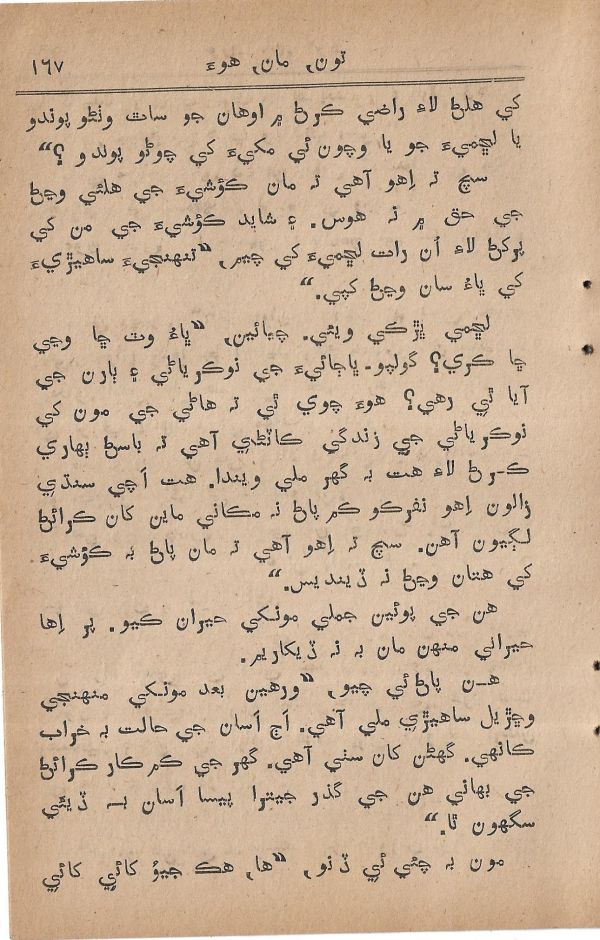 تون، مان، هوءَ ١٦٧
کي هلڻ لاءِ راضي ڪرڻ ۾ اوهان جو ساٿ وٺڻو پوندو
يا لڇميءَ جو يا وڃون ئي مکيءَ کي چوڻو پوندو ؟“
سچ ته اِهو آهي ته مان ڪؤشيءَ جي هلڻي وڃڻ
جي حق ۾ نه هوس. ۽ شايد ڪؤشيءَ جي من کي
پرکڻ لاءِ اُن رات لڇميءَ کي چيم، “تنهنجيءَ ساهيڙيءَ
کي ڀاءُ سان وڃڻ کپي.“
لڇمي ڀڙڪي ويئي. چيائين، “ڀاءُ وٽ ڇا وڃي
ڇا ڪري؟ گولپو۔ ڀاڄائيءَ جي نوڪرياڻي ۽ ٻارن جي
آيا ٿي رهي؟ هوءَ چوي ٿي ته هاڻي جي مون کي
نوڪرياڻي جي زندگي ڪاٽڻي آهي ته باسڻ ٻهاري
ڪرڻ لاءِ هت به گهر ملي ويندا. هت اَچي سنڌي
زالون اِهو نفرڪو ڪم پاڻ نه مڪاني ماين کان ڪرائڻ
لڳيون آهن. سچ ته اِهو آهي ته مان پاڻ به ڪؤشيءَ
کي هتان وڃڻ نه ڏينديس.“
هن جي پوئين جملي مونکي حيران ڪيو. پر اِها
حيراني منهن مان به نه ڏيکاريم.
هن پاڻ ئي چيو، “ورهين بعد مونکي منهنجي
وڇڙيل ساهيڙي ملي آهي. اَڄ اَسان جي حالت به خراب
ڪانهي. گهڻن کان سٺي آهي. گهر جي ڪم ڪار ڪرائڻ
جي بهاني هن جي گذر جيترا پيسا اَسان به ڏيئي
سگهون ٿا.“
مون به چئي ئي ڏنو، “ها، هڪ جيؤ کائي کائي